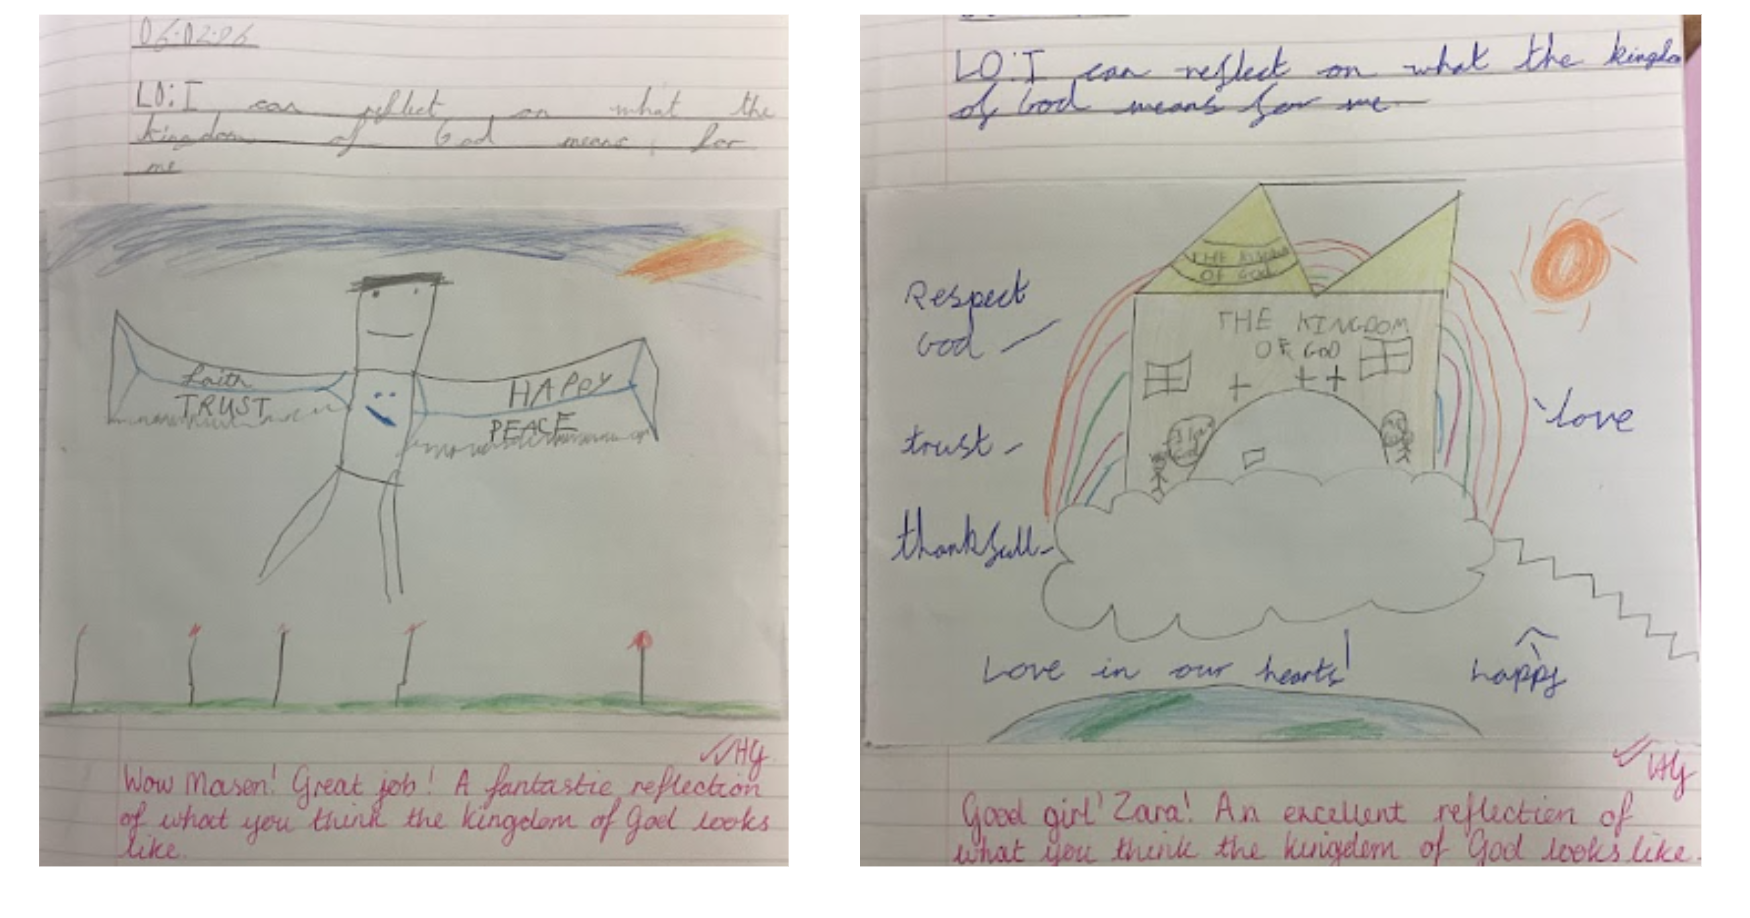 06.02.26
LO: I can reflect on what the
kingdom of God means for
me
faith
TRUST
HAPPY
PEACE
HG
Wow Mason! Great job! A fantastic reflection
of what you think the kingdom of God looks
like.
LO: I can reflect on what the kingdo
of God means for me
THE KINGDOM
OF GOD
THE KINGDOM
OF GOD
Respect
God
trust
thankfull
love
Love in our hearts!
happy
HG
Good girl Zara! An excellent reflection of
what you think the kingdom of God looks like.